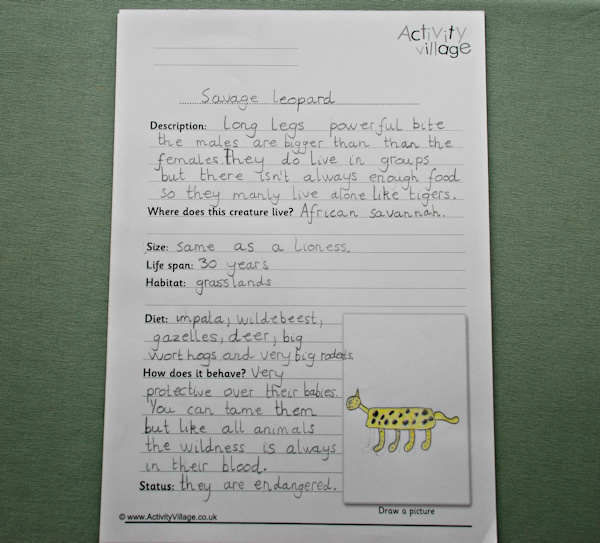 Activity
village
Savage leopard
Description: long legs powerful bite
the males are bigger than than the
females. they do live in groups
but there isn't always enough food
so they manly live alone like tigers.
Where does this creature live? African savannah.
Size: same as a lioness.
Life span: 30 years
Habitat: grasslands
Diet: impala, wildebeest,
gazelles, deer, big
worthogs and very big rodents
How does it behave? Very
protective over their babies.
You can tame them
but like all animals
the wildness is always
in their blood.
Status: they are endangered.
Draw a picture
© www.ActivityVillage.co.uk